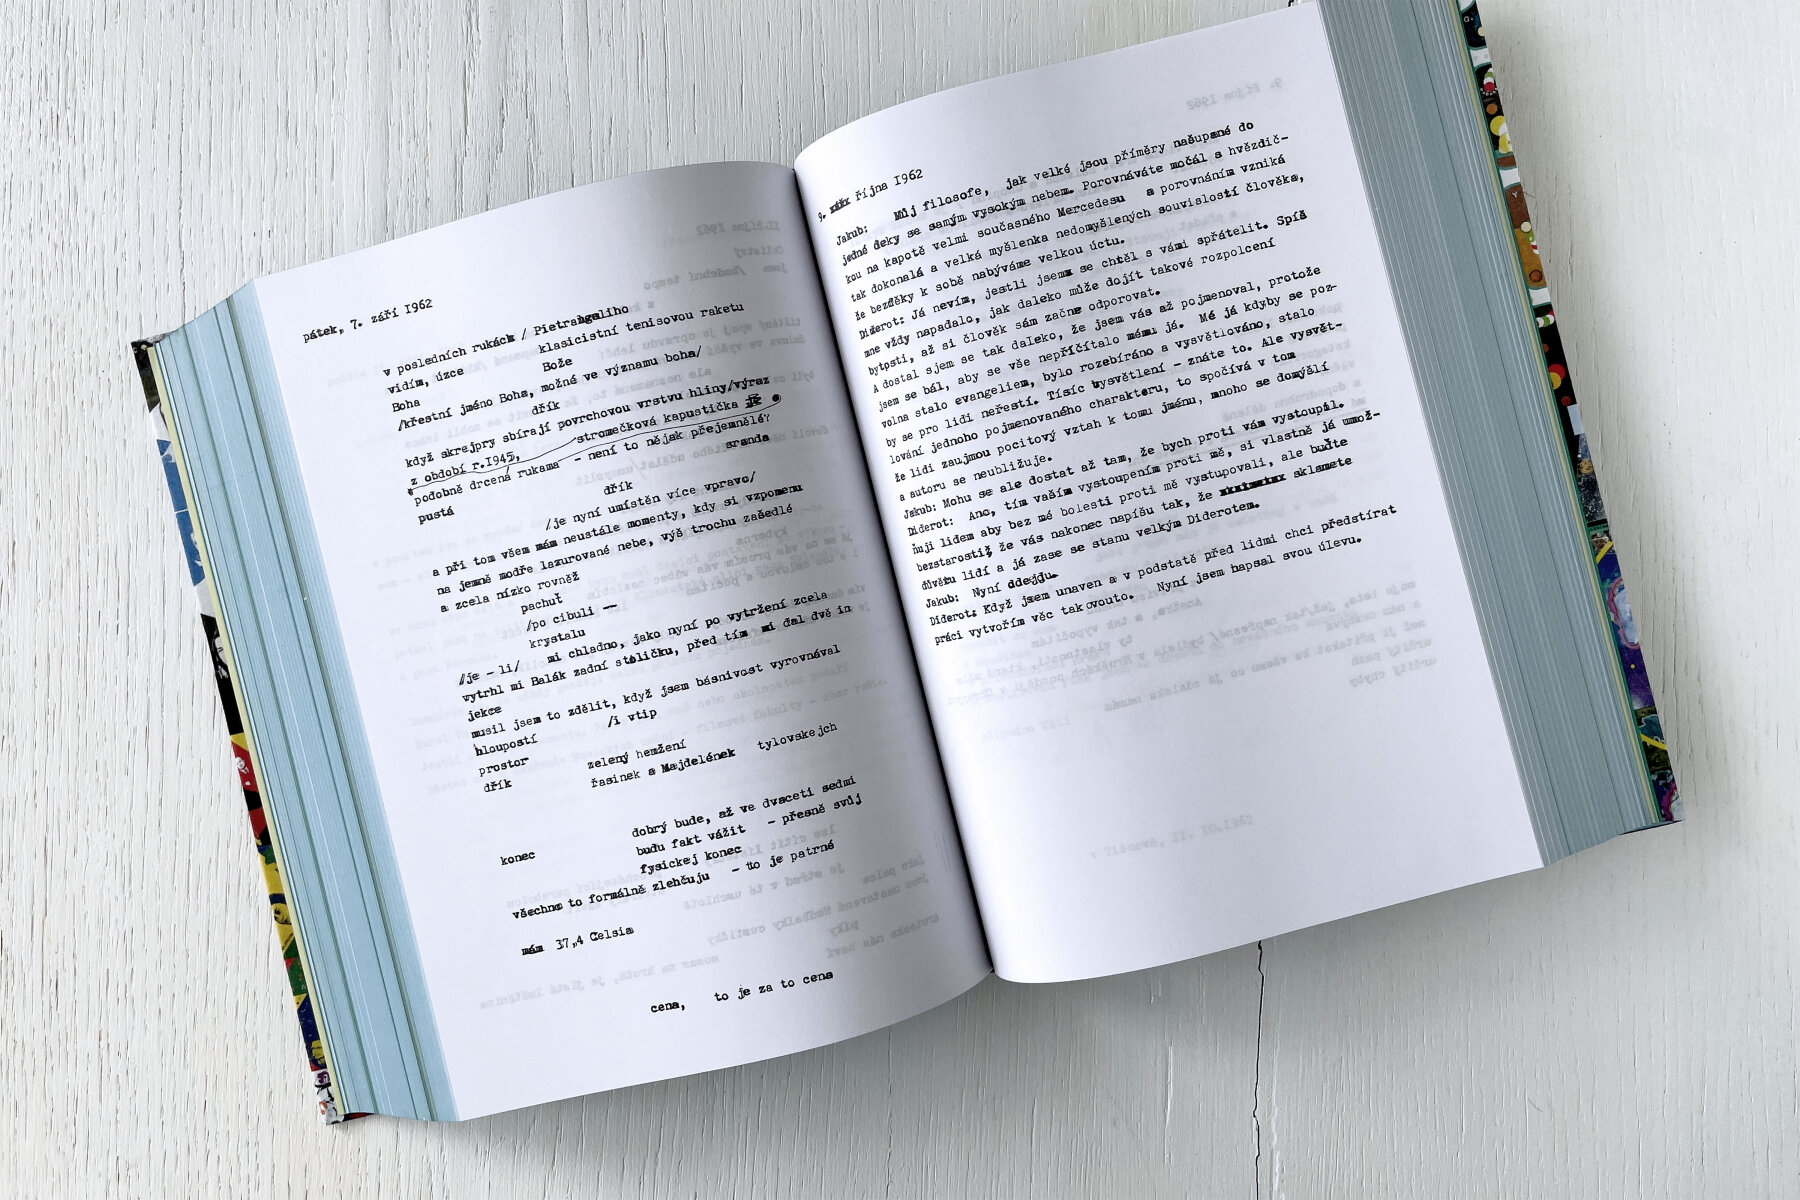 pátek, 7. září I962
v posledních rukách / Pietrangeliho
vidím, úzce klasicistní tenisovou raketu
Boha Bože
/křestní jméno Boha, možné ve významu boha/
dřík
když skrejpry sbírají povrchovou vrstvu hliny/výraz
z období r.I945, stromečková kapustička
podobně drcená rukama - není to nějak přejemnělé?
pustá sranda
dřík
/je nyní umístěn více vpravo/
a při tom všem mám neustále momenty, kdy si vzpomenu
na jemně modře lazurované nebe, výš trochu zašedlé
a zcela nízko rovněž
pachuť
/po cibuli --
krystalu
/je - li/ mi chladno, jako nyní po vytržení zcela
vytrhl mi Balák zadní stoličku, před tím mi dal dvě in
jekce
musil jsem to zdělit, když jsem básnivost vyrovnával
hloupostí /i vtip
prostor zelený hemžení
dřík řasinek a Majdelének tylovskejch
dobrý bude, až ve dvaceti sedmi
konec budu fakt vážit - přesně svůj
fysickej konec
všechno to formálně zlehčuju - to je patrné
mám 37,4 Celsia
cena, to je za to cena
9. října I962
Jakub: Můj filosofe, jak velké jsou příměry našupané do
jedné deky se samým vysokým nebem. Porovnáváte močál s hvězdič-
kou na kapotě velmi současného Mercedesu a porovnáním vzniká
tak dokonalá a velká myšlenka nedomyšlených souvislostí člověka,
že bezděky k sobě nabýváme velkou úctu.
Diderot: Já nevím, jestli jsem se chtěl s vámi spřátelit. Spíš
mne vždy napadalo, jak daleko může dojít takové rozpolcení
bytosti, až si člověk sám začne odporovat.
A dostal sjem se tak daleko, že jsem vás až pojmenoval, protože
jsem se bál, aby se vše nepříčítalo mému já. Mé já kdyby se poz-
volna stalo evangeliem, bylo rozebíráno a vysvětlováno, stalo
by se pro lidi neřestí. Tisíc vysvětlení - znáte to. Ale vysvět-
lování jednoho pojmenovaného charakteru, to spočívá v tom
že lidi zaujmou pocitový vztah k tomu jménu, mnoho se domýšlí
a autoru se neubližuje.
Jakub: Mohu se ale dostat až tam, že bych proti vám vystoupil.
Diderot: Ano, tím vaším vystoupením proti mě, si vlastně já umož-
ňuji lidem aby bez mé bolesti proti mě vystupovali, ale buďte
bezstarostiý, že vás nakonec napíšu tak, že sklamete
důvětu lidí a já zase se stanu velkým Diderotem.
Jakub: Nyní odejdu.
Diderot: Když jsem unaven a v podstatě před lidmi chci předstírat
práci vytvořím věc takovouto. Nyní jsem hapsal svou úlevu.